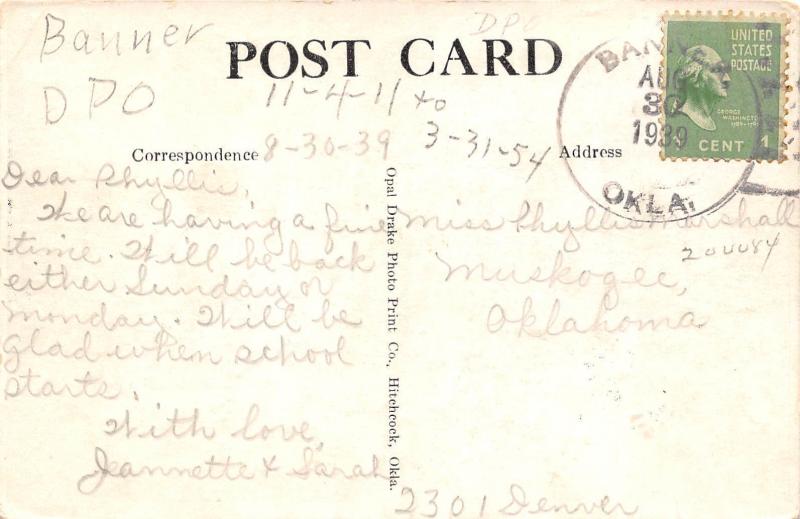 Banner
DPO
DPO
POST CARD
11-4-11 to
3-31-54
8-30-39
Correspondence
Address
BANNER
AUG
30
1939
OKLA.
UNITED
STATES
POSTAGE
GEORGE
WASHINGTON
1789-1797
CENT 1
Dear Phyllis,
We are having a fine
time. Will be back
either Sunday or
Monday. Will be
glad when school
starts.
With love,
Jeannette & Sarah
Opal Drake Photo Print Co., Hitchcock, Okla.
Miss Phyllis Marshall
Muskogee,
Oklahoma
200084
2301 Denver